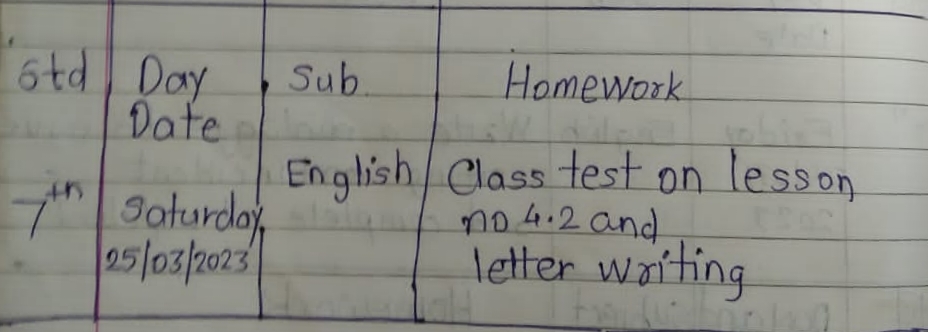 Std Day Sub. Homework
Date
English Class test on lesson
7th Saturday no 4.2 and
25/03/2023 letter writing